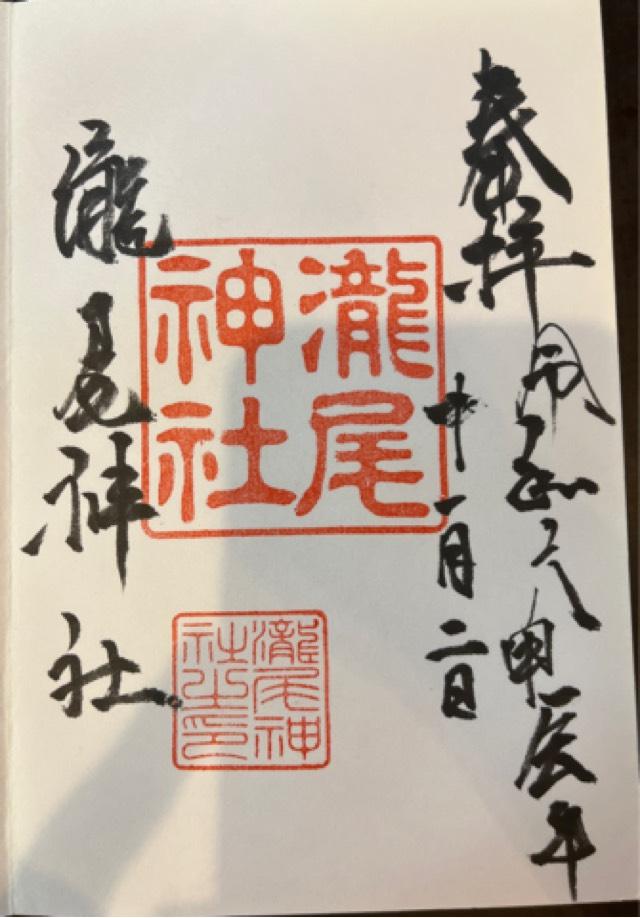 奉拝 令和六甲辰年
十一月二日
瀧尾
神社
瀧尾神
社之印
瀧尾神社